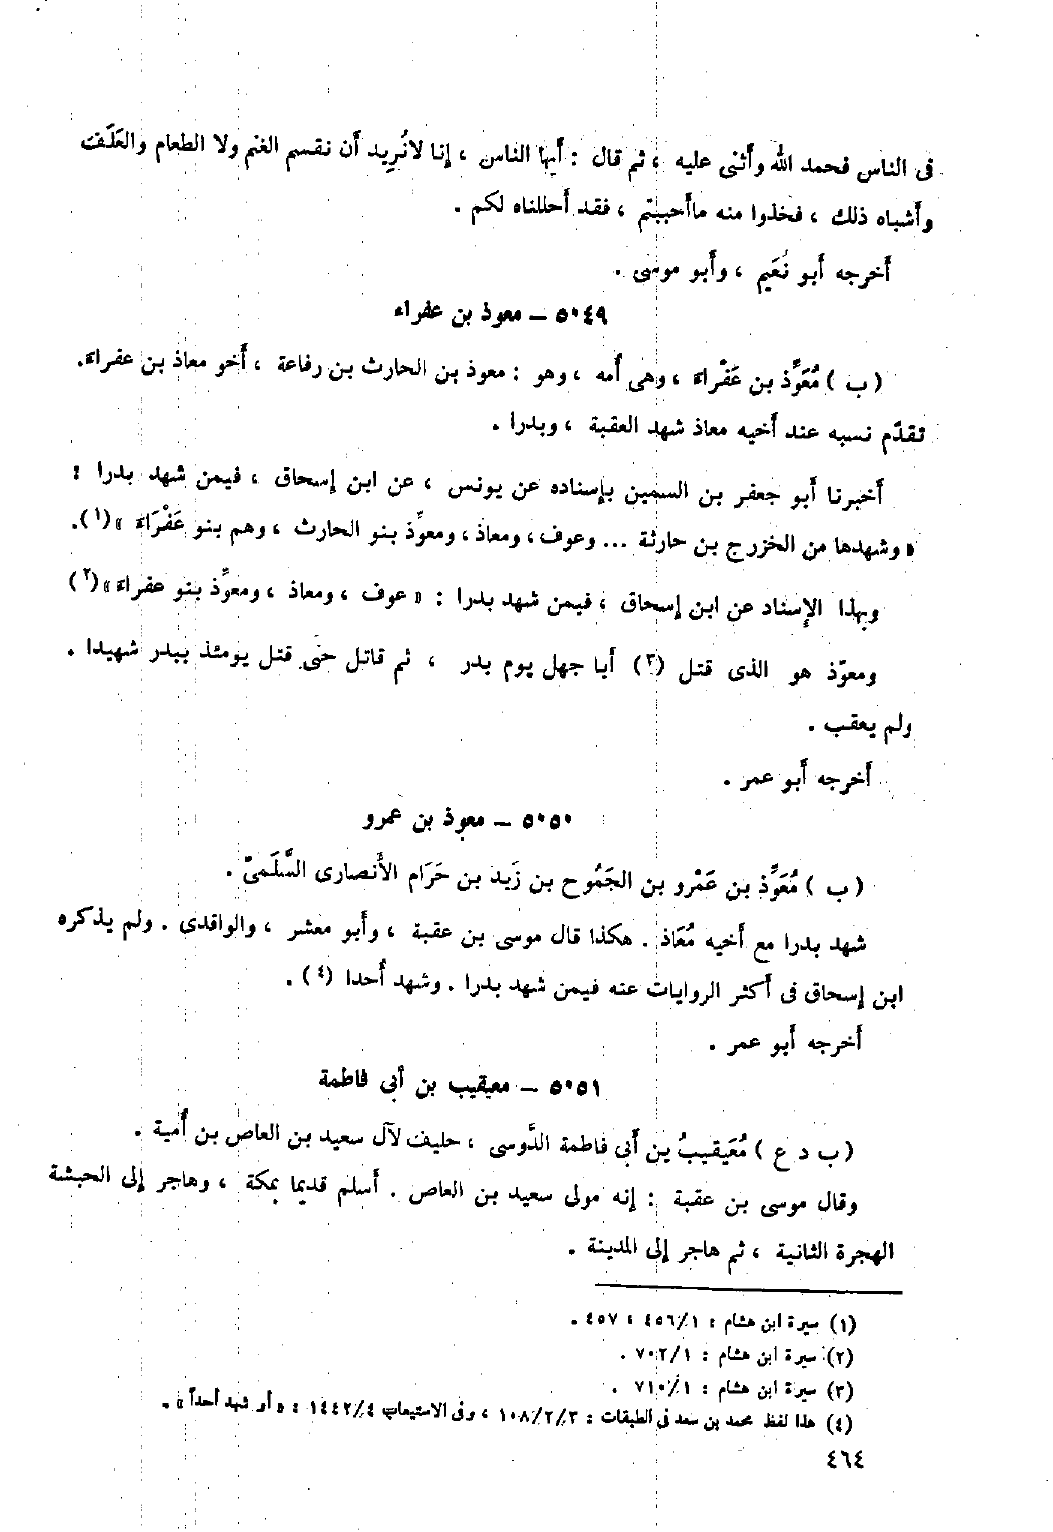 فى الناس فحمد الله وأَثنى عليه ، ثم قال : أَيها الناس ، إنا لانُرِيد أَن نقسم الغنم ولا الطعام والعَلَف
وأَشباه ذلك ، فخذوا منه ماأَحببتم ، فقد أَحللناه لكم .
أَخرجه أَبو نُعَيم ، وأَبو موسى .
٥٠٤٩ – معوذ بن عفراء
( ب ) مُعَوِّذ بن عَفْراءَ ، وهى أُمه ، وهو : معوذ بن الحارث بن رفاعة ، أَخو معاذ بن عفراءَ.
تقدّم نسبه عند أَخيه معاذ شهد العقبة ، وبدرا .
أَخبرنا أَبو جعفر بن السمين بإسناده عن يونس ، عن ابن إسحاق ، فيمن شهد بدرا :
« وشهدها من الخزرج بن حارثة ... وعوف ، ومعاذ ، ومعوِّذ بنو الحارث ، وهم بنو عَفْرَاءَ » (١).
وبهذا الإسناد عن ابن إسحاق ، فيمن شهد بدرا : « عوف ، ومعاذ ، ومعوِّذ بنو عفراءَ » (٢)
ومعوّذ هو الذى قتل (٣) أَبا جهل يوم بدر ، ثم قاتل حتى قتل يومئذ ببدر شهيدا .
ولم يعقب .
أَخرجه أَبو عمر .
٥٠٥٠ – معوذ بن عمرو
( ب ) مُعَوِّذ بن عَمْرو بن الجَمُوح بن زَيد بن حَرَام الأَنصارى السَّلَمىّ .
شهد بدرا مع أَخيه مُعَاذ . هكذا قال موسى بن عقبة ، وأَبو معشر ، والواقدى . ولم يذكره
ابن إسحاق فى أَكثر الروايات عنه فيمن شهد بدرا . وشهد أُحدا (٤) .
أَخرجه أَبو عمر .
٥٠٥١ – معيقيب بن أبى فاطمة
( ب د ع ) مُعَيقيبُ بن أَبى فاطمة الدَّوسى ، حليف لآل سعيد بن العاص بن أُمية .
وقال موسى بن عقبة : إنه مولى سعيد بن العاص . أَسلم قديما بمكة ، وهاجر إلى الحبشة
الهجرة الثانية ، ثم هاجر إلى المدينة .
(١) سيرة ابن هشام : ٤٥٦/١ ، ٤٥٧ .
(٢) سيرة ابن هشام : ٧٠٢/١ .
(٣) سيرة ابن هشام : ٧١٠/١ .
(٤) هذا لفظ محمد بن سعد فى الطبقات : ١٠٨/٢/٣ ، وفى الاستيعاب ١٤٤٢/٤ : « أو شهد أحداً » .
٤٦٤